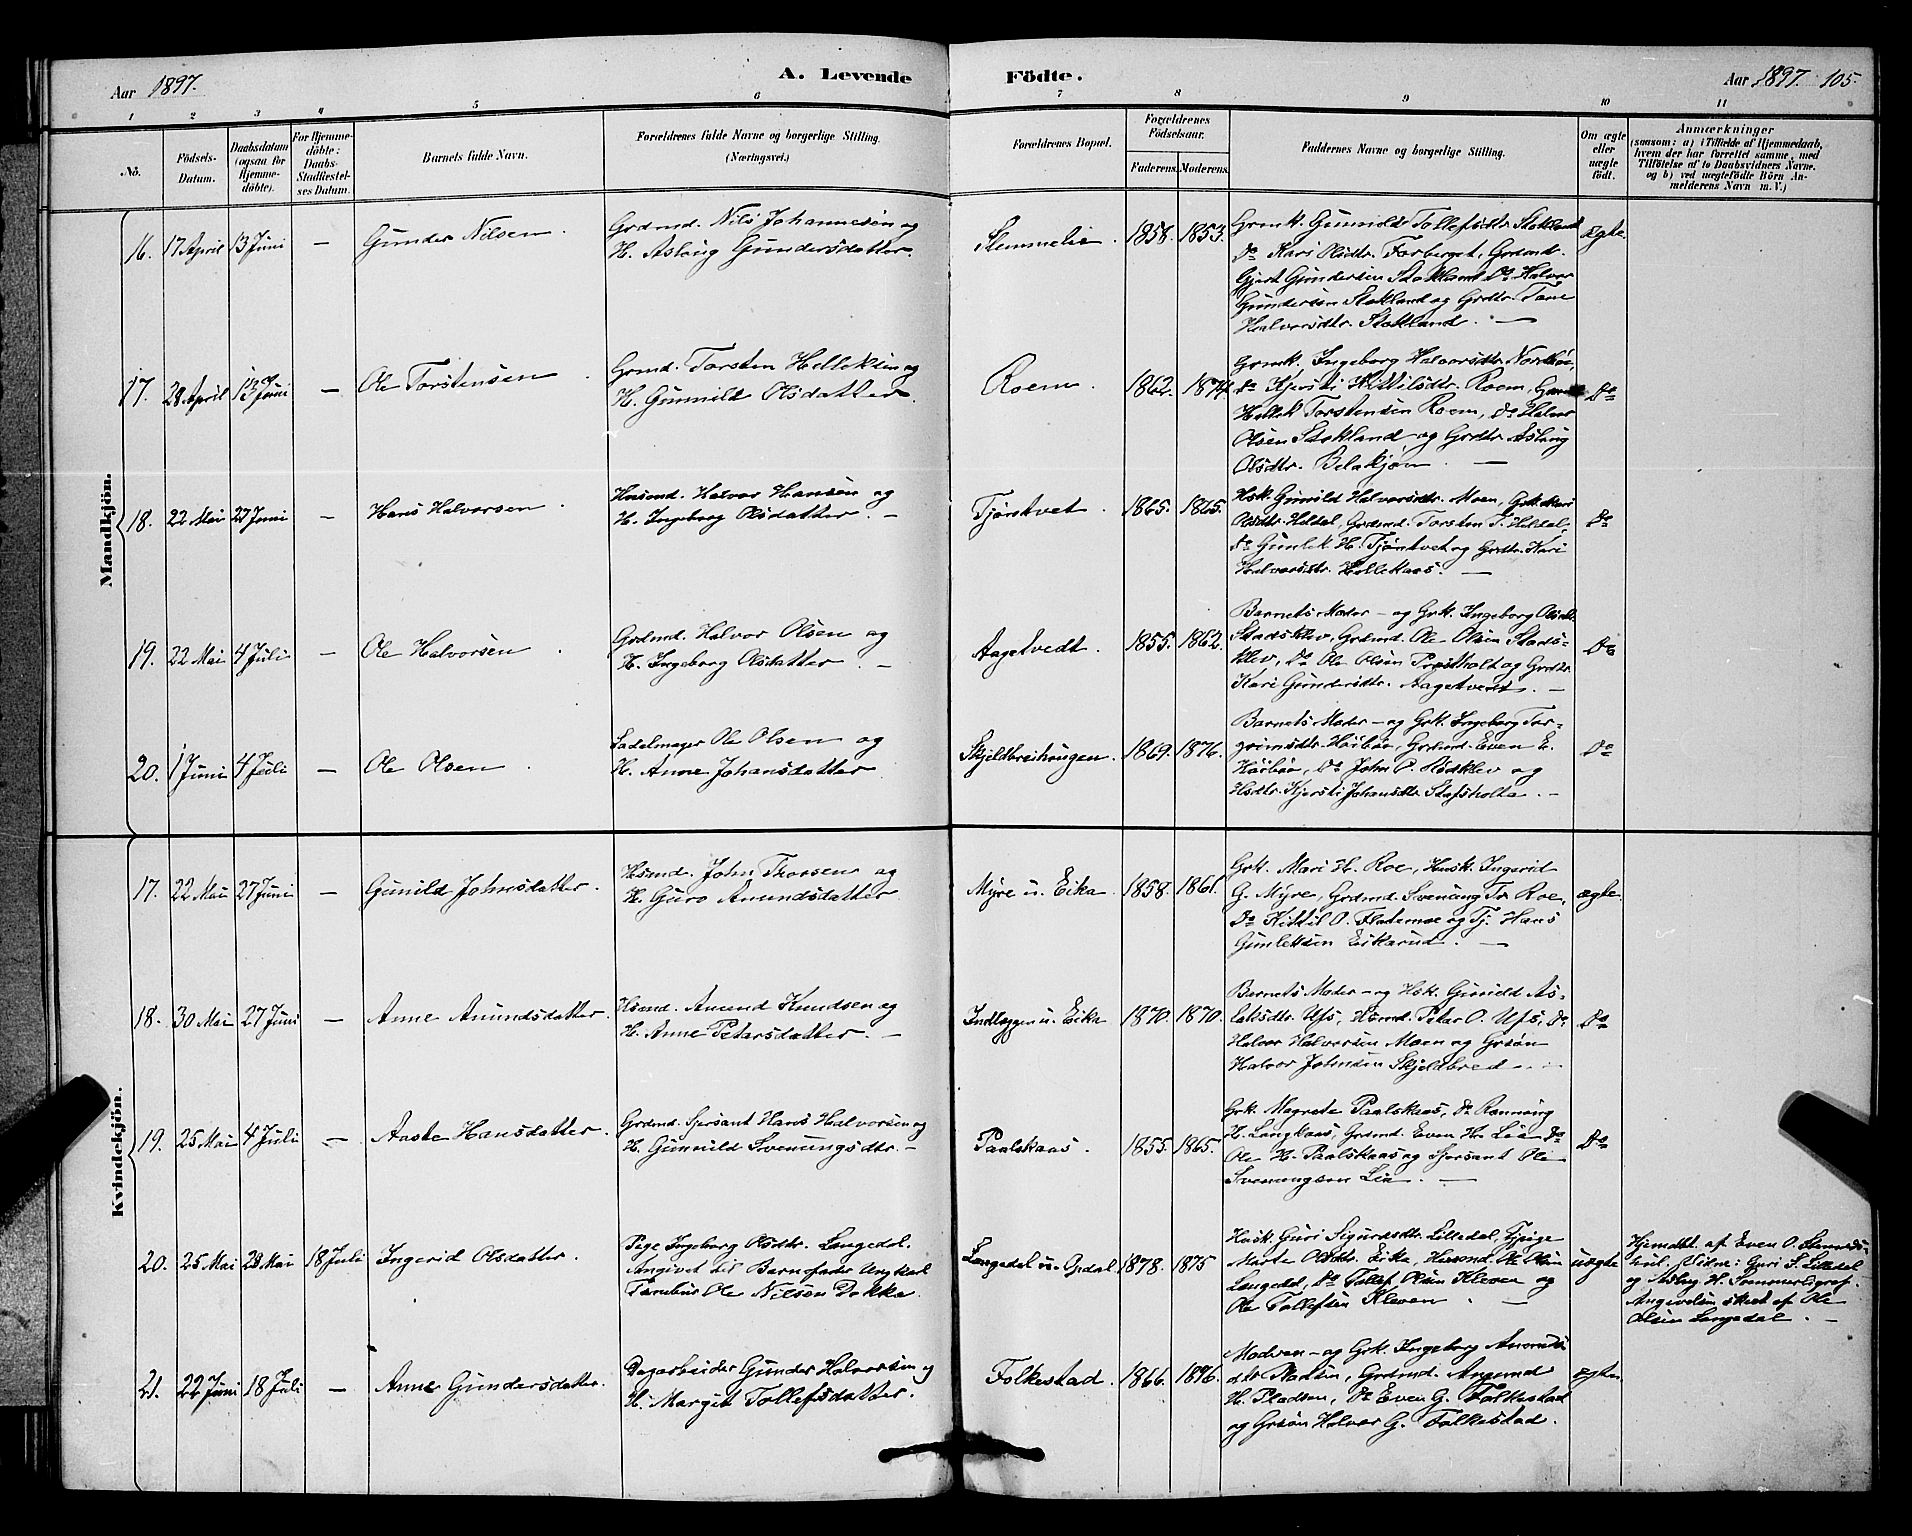 Aar 1897.
A. Levende
Födte.
Aar 1897. 105.
1 2 3 4 5 6 7 8 9 10 11
No.
Födsels-
Datum.
Daabsdatum
(ogsaa for
Hjemme-
döbte).
For Hjemme-
döbte:
Daabs-
Stadfæstel-
ses Datum.
Barnets fulde Navn.
Forældrenes fulde Navne og borgerlige Stilling.
(Næringsvei.)
Forældrenes Bopæl.
Forældrenes
Födselsaar.
Faderens. Moderens.
Faddernes Navne og borgerlige Stilling.
Om ægte
eller
uægte
födt.
Anmærkninger
(saasom: a) i Tilfælde af Hjemmedaab,
hvem der har forrettet samme, med
Tilföielse af to Daabsvidners Navne,
og b) ved uægtefödte Börn An-
melderens Navn m. V.)
Mandkjön.
16. 17 April 13 Juni — Gunder Nilsen.
Grdmd. Nils Johannesen og
H. Aslaug Gundersdatter.
Stemmelie. 1858. 1853.
Grmk. Gunnild Tollefsdtr. Stokland
Do Kari Olsdtr. Forberget, Grdmd.
Gjert Gundersen Stokland Do Halvor
Gundersen Stokland og Grdtr. Tone
Halvorsdtr. Stokland. —
ægte.
17. 28 April 13 Juni — Ole Torstensen
Grmd. Torsten Helleksen og
H. Gunnild Olsdatter.
Roem. 1862. 1874.
Grmk. Ingeborg Halvorsdtr. Nordbøe,
Do Kjersti Kittilsdtr. Roem,
Hellek Torstensen Roem, Do Halvor
Olsen Stokland og Grdtr. Aslaug
Olsdtr. Belakjøn. —
Do
18. 22 Mai 27 Juni — Hans Halvorsen.
Husmd. Halvor Hansen og
H. Ingeborg Olsdatter. —
Tjøntvet. 1865. 1865.
Hsk. Gunild Halvorsdtr. Moen, Grk. Mari
Olsdtr. Heldal, Grdmd. Torsten T. Heldal,
Do Gunlek H. Tjøntvet og Grdtr. Kari
Halvorsdtr. Hellekaas. —
Do
19. 22 Mai 4 Juli — Ole Halvorsen.
Grdmd. Halvor Olsen og
H. Ingeborg Olsdatter. —
Aagetvedt. 1855. 1862.
Barnets Moder — og Grk. Ingeborg Olsdtr.
Stadsklev, Grdmd. Ole Olsen Stads-
klev, Do Ole Olsen Prestholt og Grdtr.
Kari Gundersdtr. Aagetvedt. —
Do
20. 1 Juni 4 Juli — Ole Olsen.
Sadelmager Ole Olsen og
H. Anne Johansdatter.
Skjeldbreihaugen. 1869. 1876.
Barnets Moder — og Grk. Ingeborg Tor-
grimsdtr. Haibøe, Grdmd. Even E.
Haibøe, Do John P. Rødklev og
Hsdtr. Kjersti Johansdtr. Stafsholta. —
Do
Kvindekjön.
17. 22 Mai 27 Juni — Gunild Johnsdatter.
Hsmd. John Thorsen og
H. Guro Amundsdatter.
Myre u. Eika. 1858. 1861.
Grk. Mari H. Roe, Husk. Ingerid
G. Myre, Grdmd. Svenung Tr. Roe,
Do Kittil O. Flatemoe og Tj. Hans
Gunleksen Eikarud. —
ægte.
18. 30 Mai 27 Juni — Anne Anundsdatter.
Hsmd. Anund Knudsen og
H. Anne Petersdatter. —
Indlæggen u. Eika 1870. 1870.
Barnets Moder — og Hsk. Gunild As-
laksdtr. Ufs, Husmd. Peter O. Ufs, Do
Halvor Halvorsen Moen og Grsøn
Halvor Johnsen Skjeldbred —
Do
19. 25 Mai 4 Juli — Aaste Hansdatter.
Grdmd. Sjersant Hans Halvorsen og
H. Gunnild Svenungsdtr. —
Paalskaas. 1855. 1865.
Grk. Magrete Paalskaas, Do Rannaug
H. Langkaas, Grdmd. Even H. Lia Do
Ole H. Paalskaas og Sjersant Ole
Svenungsen Lia. —
Do
20. 25 Mai 28 Mai 18 Juli Ingerid Olsdatter.
Pige Ingeborg Olsdtr. Langedal.
Angivet til Barnefader Ungkarl
Tambur Ole Nilsen Dokka.
Langedal u. Gdal 1878. 1875
Husk. Guri Sigurdsdtr. Lilledal, Tjpige
Marte Olsdtr. Eika, Husmd. Ole Olsen
Langedal, Do Tollef Olsen Kleven og
Ole Tollefsen Kleven. —
uægte
Hjemdbt. af Even O.
Vidne: Guri S. Lilledal
og Aslaug H.
Angivelsen skeet af Ole
Olsen Langedal. —
21. 22 Juni 18 Juli — Anne Gundersdatter.
Dagarbeider Gunder Halvorsen og
H. Margit Tollefsdatter.
Folkestad. 1866. 1876.
Moderen — og Grk. Ingeborg Anunds-
dtr. Pladsen, Grdmd. Angrund
H. Pladsen, Do Even G. Folkestad
og Grsøn Halvor G. Folkestad.
ægte.